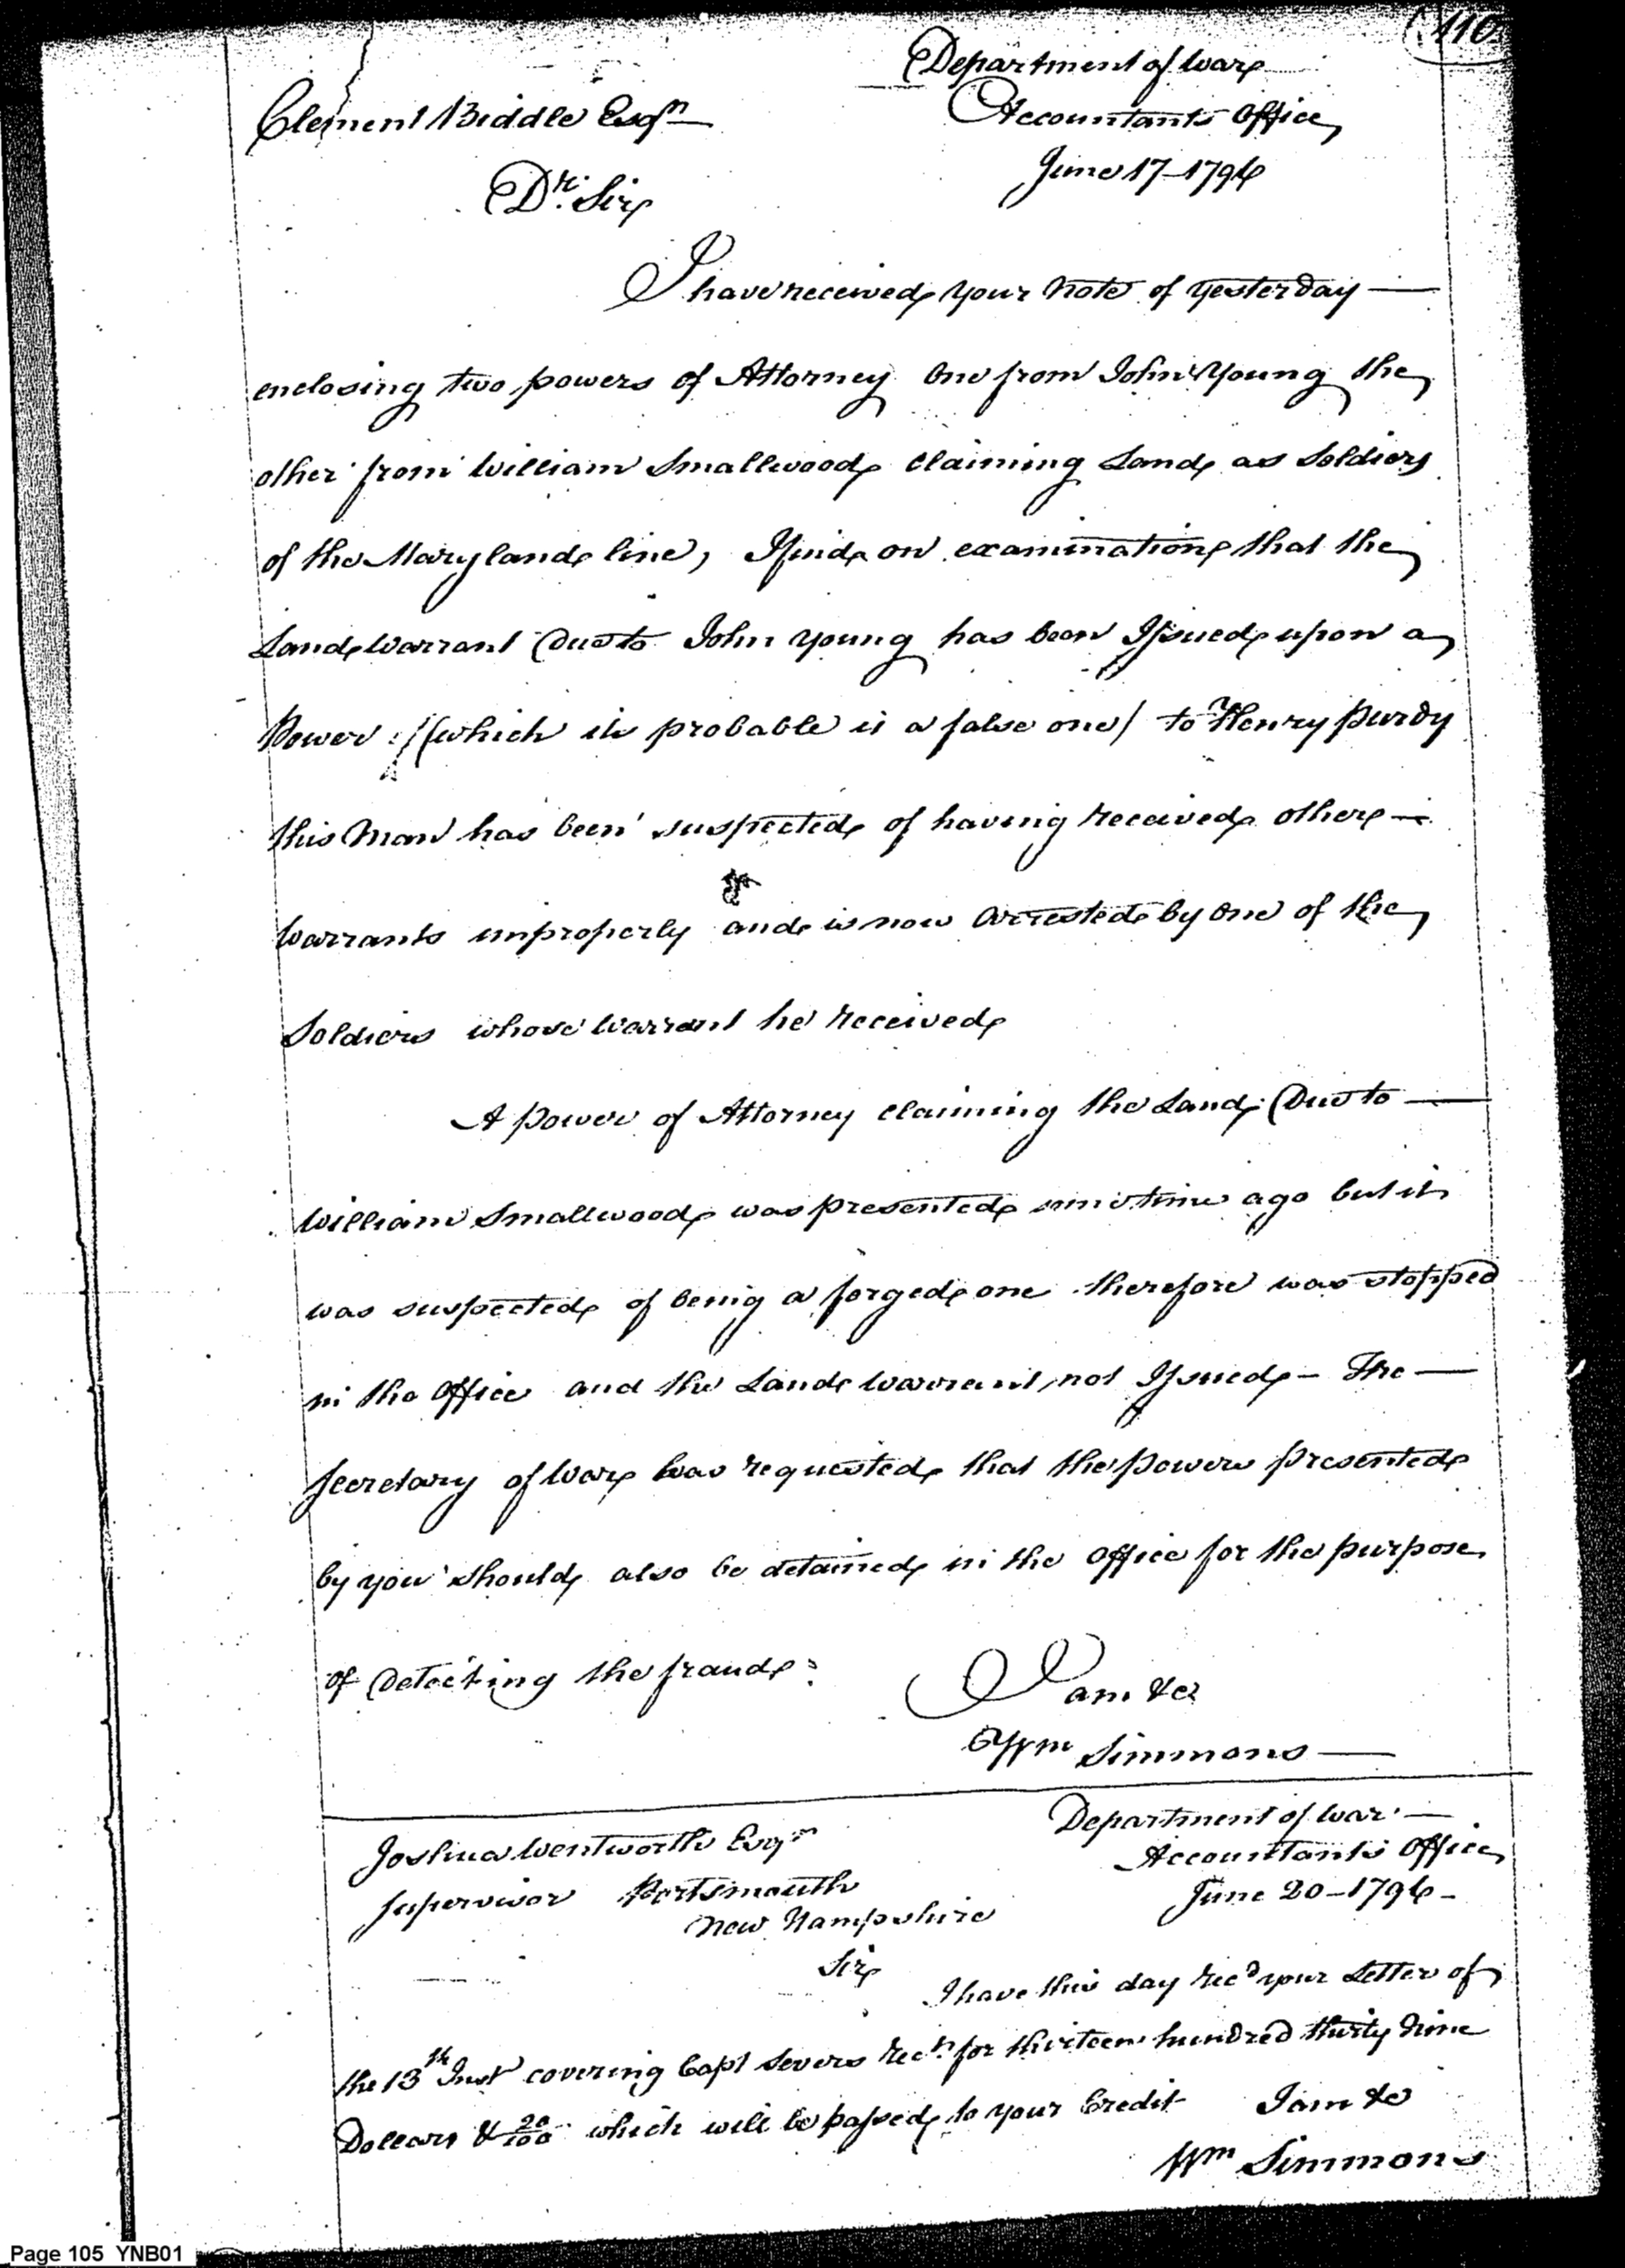 110
Department of War
Clement Biddle Esqr
Accountants Office
June 17 1796
Dr. Sir
I have received your note of yesterday
enclosing two powers of Attorney One from John Young the
other from William Smallwood claiming Land as Soldiers
of the Maryland line, I find on examination that the
Land Warrant Due to John Young has been Issued upon a
Power (which its probable is a false one) to Henry Purdy
this Man has been suspected of having received other
Warrants improperly and is now Arrested by One of the
Soldiers whose Warrant he received
A power of Attorney claiming the Land Due to
William Smallwood was presented some time ago but it
was suspected of being a forged one therefore was stopped
in the Office and the Land Warrant not Issued – The
Secretary of War has requested that the Powers presented
by you should also be detained in the Office for the purpose
of Detecting the fraud
I am &c
Wm Simmons
Department of War
Joshua Wentworth Esqr
Accountants Office
Supervisor Portsmouth
June 20 – 1796
New Hampshire
Sir
I have this day recd your Letter of
the 13th Inst covering Capt Severs rect for thirteen hundred thirty Nine
Dollars & 20/100 which will be passed to your Credit I am &c
Wm Simmons
Page 105 YNB01